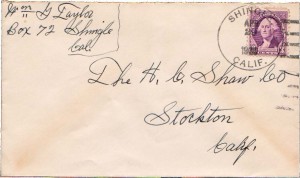 Wm G Taylor
Box 72 Shingle
Cal.
SHINGLE
CALIF.
The H. C. Shaw Co
Stockton
Calif.